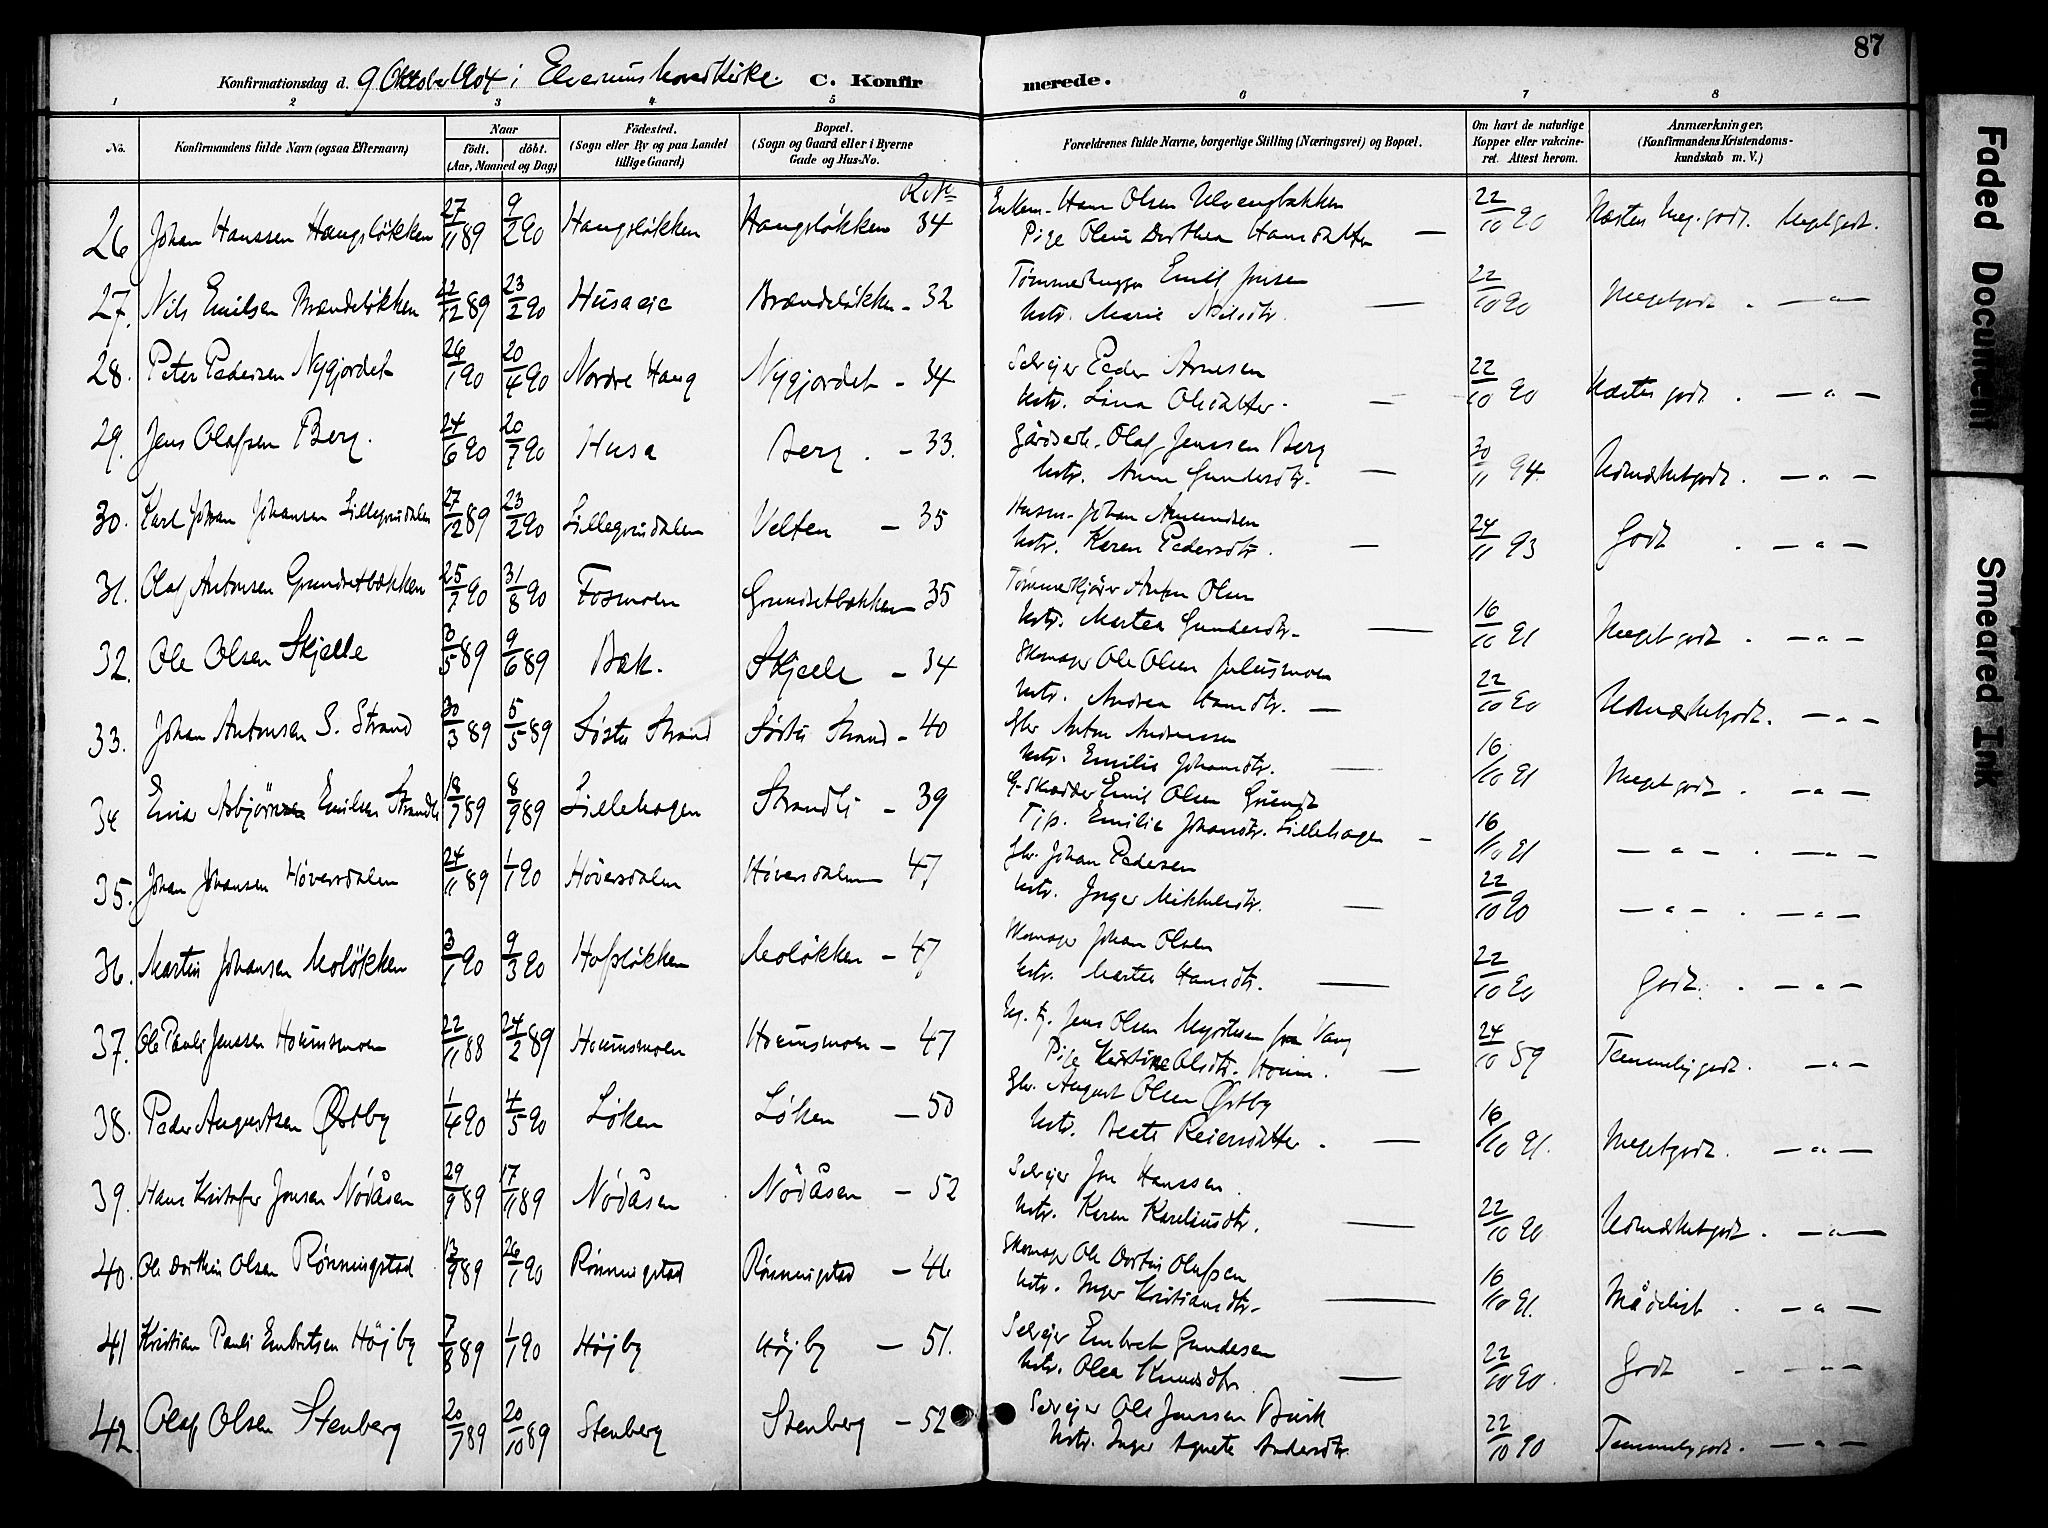 87
Konfirmationsdag d. 9 Oktober 1904 i Elverums hovedkirke. C. Konfirmerede.
1 2 3 4 5 6 7 8
No. Konfirmandens fulde Navn (ogsaa Efternavn) Naar födt. döbt. (Aar, Maaned og Dag) Födested. (Sogn eller By og paa Landet tillige Gaard) Bopæl. (Sogn og Gaard eller i Byerne Gade og Hus-No. Forældrenes fulde Navne, borgerlige Stilling (Næringsvei) og Bopæl. Om havt de naturlige Kopper eller vakcineret. Attest herom. Anmærkninger. (Konfirmandens Kristendomskundskab m. V.)
26 Johan Hanssen Haugsløkken 27/11 89 9/2 90 Haugsløkken Haugsløkken 34 Enkem. Hans Olsen Ulvengbakken
Pige Oline Dorthea Hansdatter — 22/10 90 Næsten Meg. godt. Megetgodt.
27. Nils Emilsen Brændeløkken 22/12 89 23/2 90 Husaeie Brændeløkken - 32 Tømmerhugger Emil Jensen
Hstr. Marie Nilsdtr. — 22/10 90 Megetgodt . — " —
28. Peter Pedersen Nygjordet 26/1 90 20/4 90 Nordre Haug Nygjordet - 34 Selvejer Peder Arnesen
Hstr. Lina Olsdatter. — 22/10 90 Næsten godt . — " —
29. Jens Olafsen Berg. 24/6 90 20/7 90 Husa Berg . - 33. Gårdbr. Olaf Jenssen Berg
Hstr. Anne Gundersdtr. — 30/11 94. Udmærketgodt. — " —
30. Karl Johan Johansen Lillegrindalen 27/12 89 23/2 90 Lillegrindalen Velten - 35 Husm. Johan Amundsen
Hstr. Karen Pedersdtr. — 24/11 93 Godt . — " —
31. Olaf Antonsen Grundsetbækken 25/7 90 31/8 90 Fosmoen Grundsetbækken 35 Tømmerkjører Anton Olsen
Hstr. Martea Gundersdtr. — 16/10 91 Megetgodt . — " —
32. Ole Olsen Skjelle 3/5 89 9/6 89 Bæk. Skjelle - 34 Skomager Ole Olsen Julusmoen
Hstr. Andrea Hansdtr. — 22/10 90 Udmærketgodt. — " —
33. Johan Antonsen S. Strand 30/3 89 5/5 89 Søstu Strand Søstu Strand - 40 Gbr Anton Andreassen
Hstr. Emilie Johansdtr. — 16/10 91 Megetgodt . — " —
34 Einar Asbjørn Emilsen Strandli 18/7 89 8/9 89 Lillehagen Strandli - 39 G. Skrædder Emil Olsen Grundt
Tjp. Emilie Johansdtr. Lillehagen — 16/10 91 — " — . — " —
35. Johan Johansen Høversdalen 24/11 89 1/1 90 Høversdalen Høversdalen 47 Gbr. Johan Pedersen
Hstr. Inger Mikkelsdtr. — 22/10 90 — " — . — " —
36. Martin Johansen Moløkken 3/1 90 9/3 90 Hofsløkken Moløkken - 47 Skomager Johan Olsen
Hstr. Martea Hansdtr. — 22/10 90 Godt. . — " —
37. Ole Pauli Jenssen Houmsmoen 22/11 88 24/2 89 Houmsmoen Houmsmoen - 47 Jens Olsen fra Vang
Pige Kristine Olsdtr. Houm. — 24/10 89 Temmeligodt. — " —
38. Peder Augustsen Østby 1/4 90 4/5 90 Løken Løken — 50 Gbr. August Olsen Østby
Hstr. Beate Reiersdatter . — 16/10 91. Megetgodt. — " —
39. Hans Kristofer Jonsen Nødåsen 29/9 89 17/11 89 Nødåsen Nødåsen - 52 Selvejer Jon Hanssen.
Hstr. Karen Kareliusdtr. — 22/10 90 Udmærketgodt . — " —
40. Ole Dorthin Olsen Rønningstad 13/9 89 26/1 90 Rønningstad Rønningstad — 46 Skomager Ole Dortin Olafsen
Hstr. Inger Kristiansdtr. — 16/10 91. Mådeligt . — " —
41 Kristian Pauli Embretsen Højby 7/8 89 1/1 90 Højby Højby — 51. Selvejer Embret Gundesen
Hstr. Olea Knudsdtr. — 22/10 90. Godt . — " —
42. Olaf Olsen Stenberg 20/7 89 20/10 89 Stenberg Stenberg - 52 Selvejer Ole Jenssen Busk
Hstr. Inger Agnete Andersdtr. 22/10 90 Temmeligodt. — " —
Faded Document
Smeared Ink